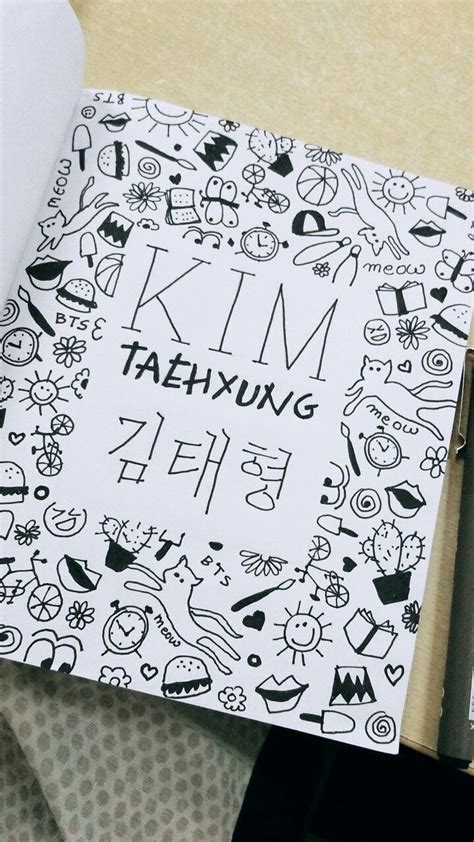 BTS
MEOW
meow
KIM
BTS
TAEHYUNG
meow
김태형
BTS
meow